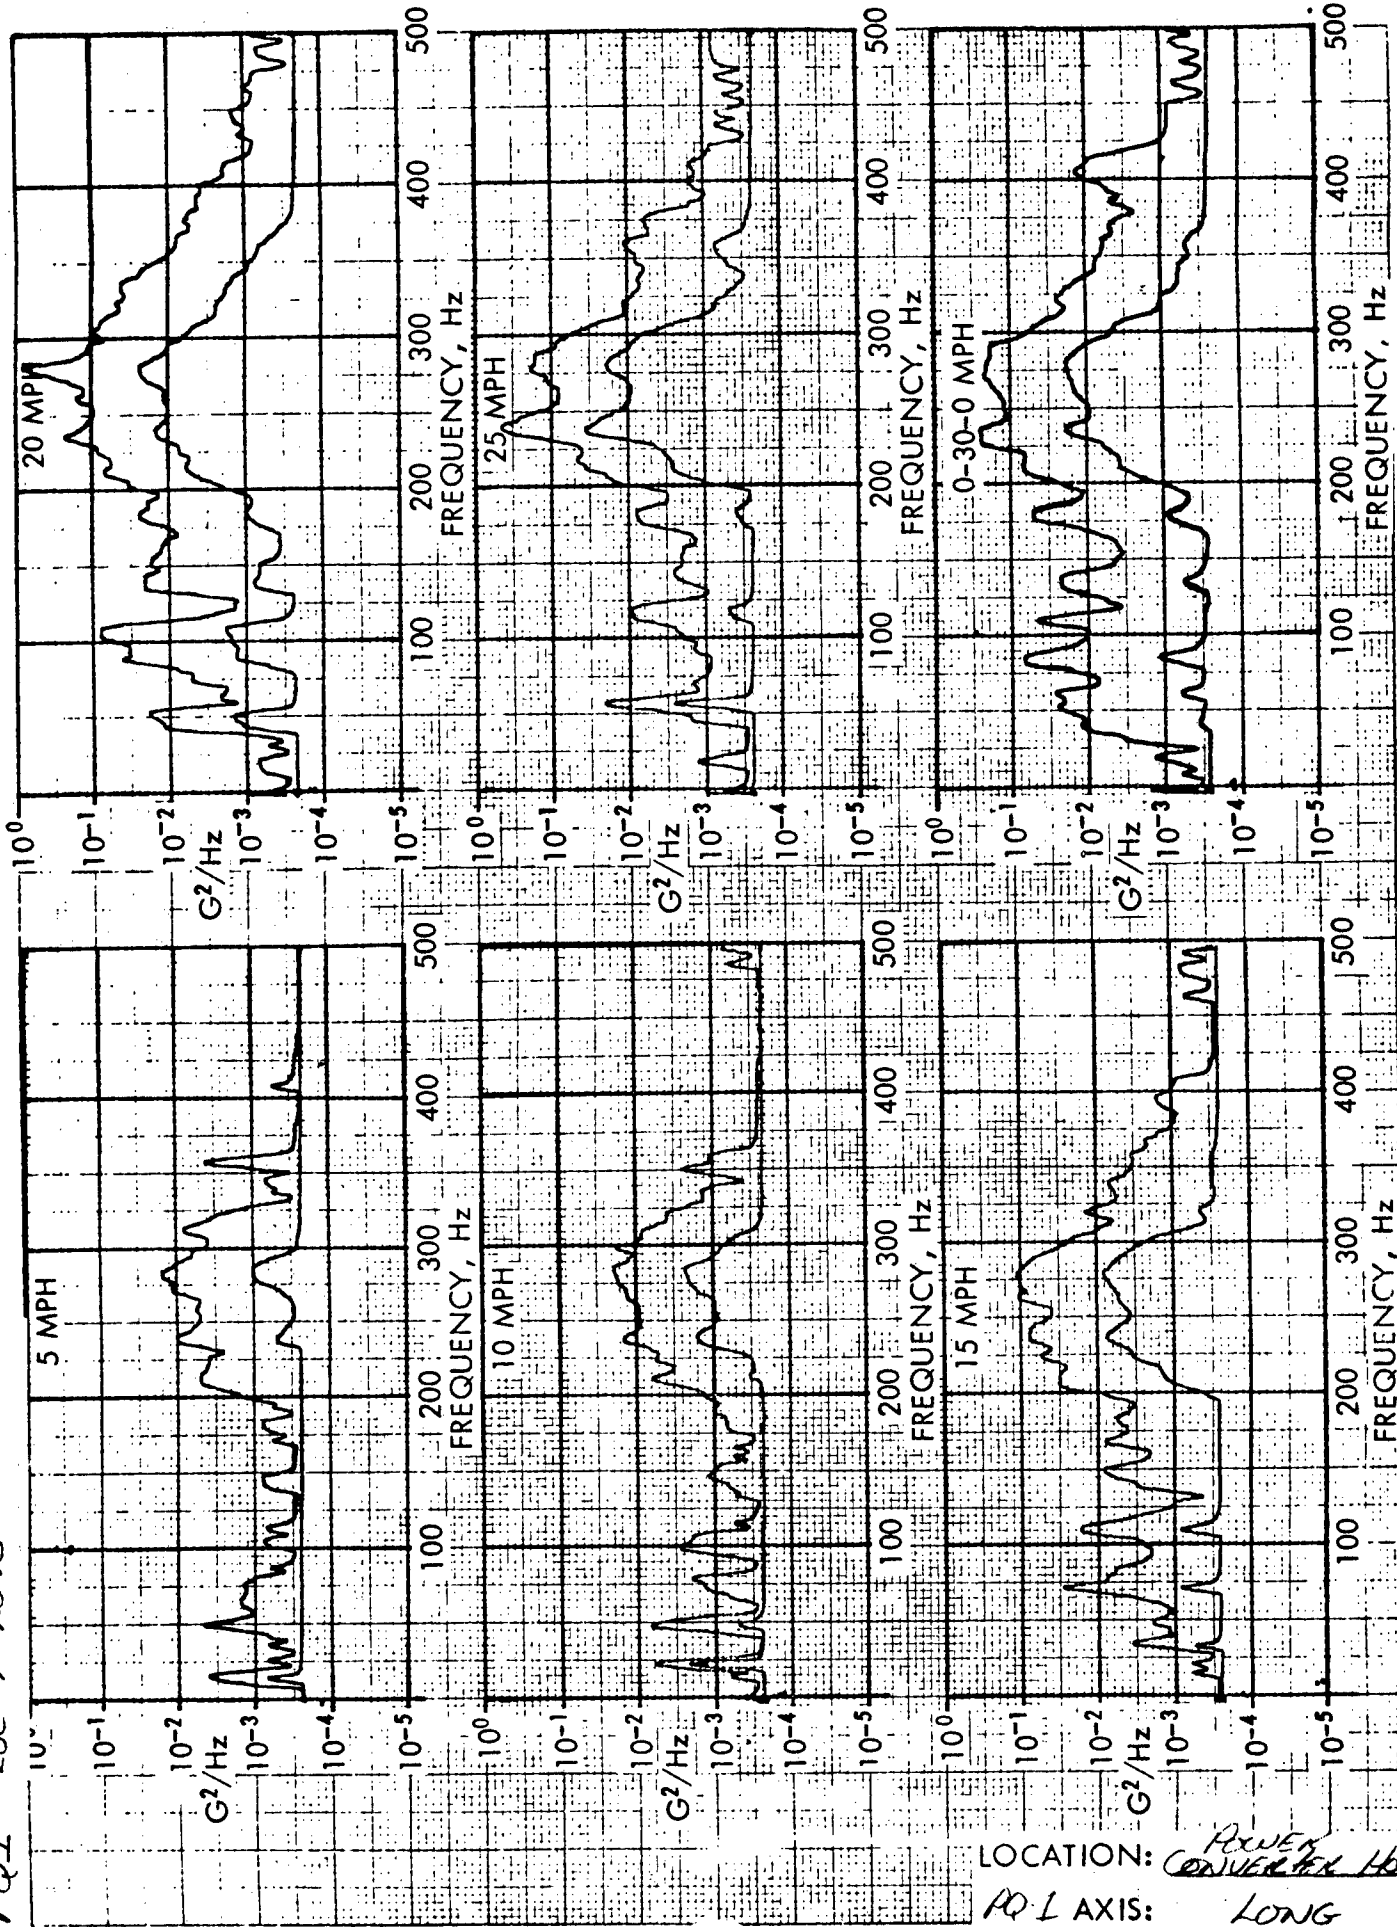 5 MPH
10⁻¹
10⁻²
G²/Hz
10⁻³
10⁻⁴
10⁻⁵
100 200 300 400 500
FREQUENCY, Hz
20 MPH
10⁰
10⁻¹
10⁻²
G²/Hz
10⁻³
10⁻⁴
10⁻⁵
100 200 300 400 500
FREQUENCY, Hz
10 MPH
10⁰
10⁻¹
10⁻²
G²/Hz
10⁻³
10⁻⁴
10⁻⁵
100 200 300 400 500
FREQUENCY, Hz
25 MPH
10⁰
10⁻¹
10⁻²
G²/Hz
10⁻³
10⁻⁴
10⁻⁵
100 200 300 400 500
FREQUENCY, Hz
15 MPH
10⁰
10⁻¹
10⁻²
G²/Hz
10⁻³
10⁻⁴
10⁻⁵
100 200 300 400 500
FREQUENCY, Hz
0-30-0 MPH
10⁰
10⁻¹
10⁻²
G²/Hz
10⁻³
10⁻⁴
10⁻⁵
100 200 300 400 500
FREQUENCY, Hz
LOCATION: POWER
CONVERTER
PQ 1 AXIS: LONG